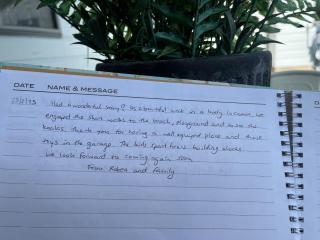 DATE NAME & MESSAGE
Had a wonderful stay! It's a beautiful unit in a lovely location. We
enjoyed the short walks to the beach, playground and to see the
koalas. Thank you for having a well equiped place and those
toys in the garage. The kids spent hours building blocks.
We look forward to coming again soon.
From Robert and Family